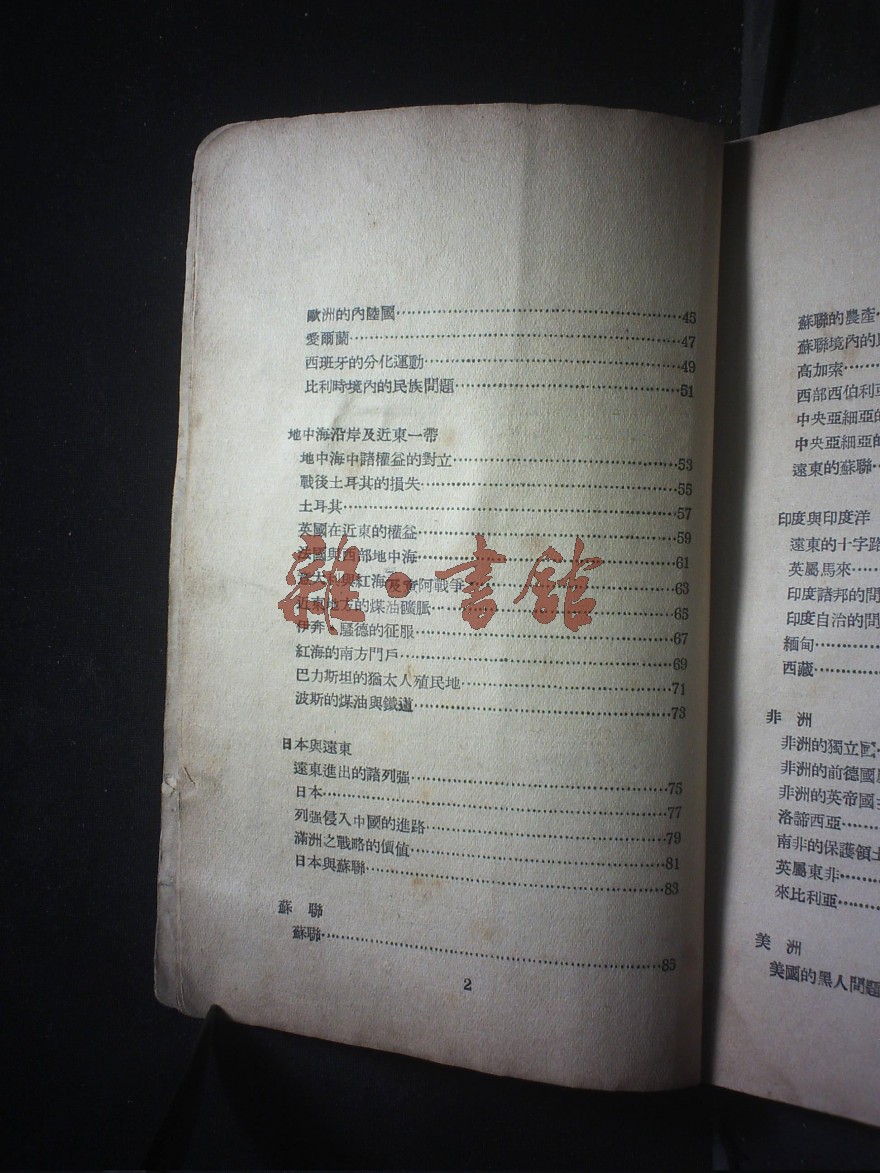 歐洲的內陸國……45
愛爾蘭……47
西班牙的分化運動……49
比利時境內的民族問題……51
地中海沿岸及近東一帶
地中海中諸權益的對立……53
戰後土耳其的損失……55
土耳其……57
英國在近東的權益……59
法國與西部地中海……61
意大利與紅海及意阿戰爭……63
近東地方的煤油礦脈……65
伊奔·騷德的征服……67
紅海的南方門戶……69
巴力斯坦的猶太人殖民地……71
波斯的煤油與鐵道……73
日本與遠東
遠東進出的諸列强……75
日本……77
列强侵入中國的進路……79
滿洲之戰略的價值……81
日本與蘇聯……83
蘇聯
蘇聯……85
2
雜·書館
蘇聯的農產
蘇聯境內的
高加索……
西部西伯利亞
中央亞細亞的
中央亞細亞的
遠東的蘇聯
印度與印度洋
遠東的十字路
英屬馬來……
印度諸邦的問
印度自治的問
緬甸……
西藏……
非洲
非洲的獨立國
非洲的前德國
非洲的英帝國
洛諦西亞……
南非的保護領土
英屬東非……
來比利亞……
美洲
美國的黑人問題